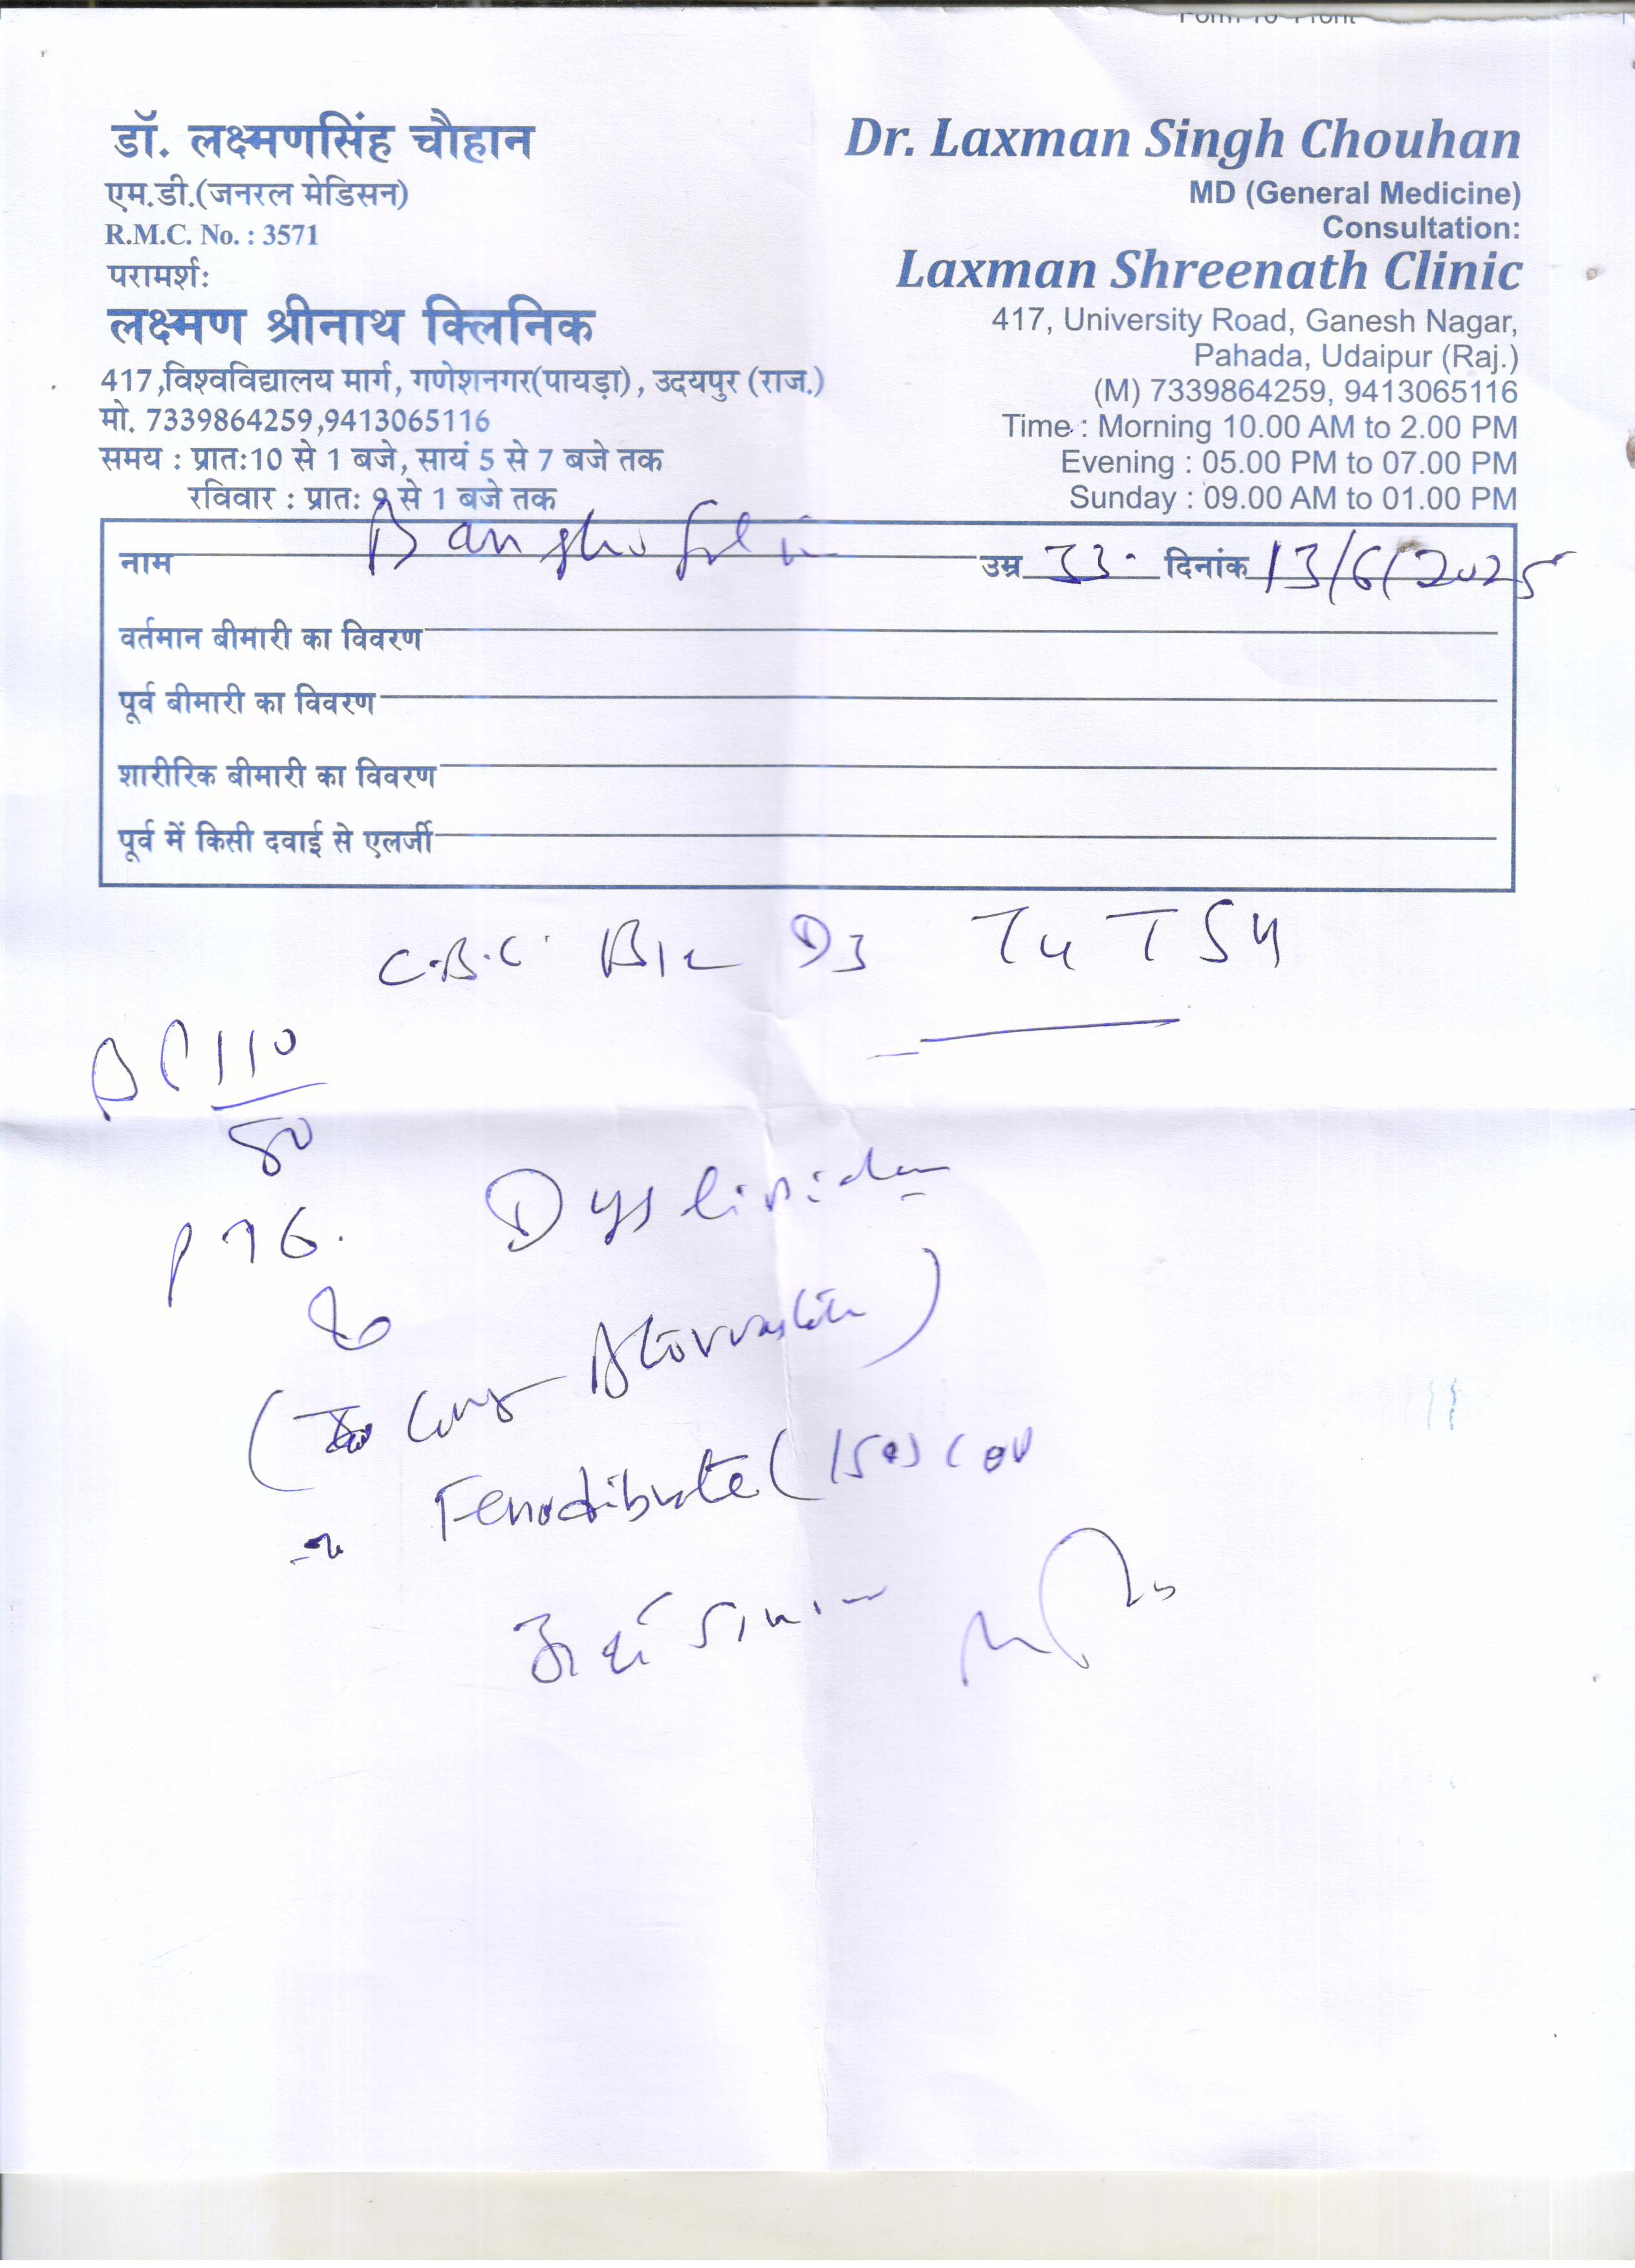 डॉ. लक्ष्मणसिंह चौहान
एम.डी.(जनरल मेडिसन)
R.M.C. No. : 3571
परामर्श:
लक्ष्मण श्रीनाथ क्लिनिक
417,विश्वविद्यालय मार्ग, गणेशनगर(पायड़ा), उदयपुर (राज.)
मो. 7339864259,9413065116
समय : प्रात:10 से 1 बजे, सायं 5 से 7 बजे तक
रविवार : प्रात: 9 से 1 बजे तक
Dr. Laxman Singh Chouhan
MD (General Medicine)
Consultation:
Laxman Shreenath Clinic
417, University Road, Ganesh Nagar,
Pahada, Udaipur (Raj.)
(M) 7339864259, 9413065116
Time : Morning 10.00 AM to 2.00 PM
Evening : 05.00 PM to 07.00 PM
Sunday : 09.00 AM to 01.00 PM
नाम उम्र 33 दिनांक 13/6/2025
वर्तमान बीमारी का विवरण
पूर्व बीमारी का विवरण
शारीरिक बीमारी का विवरण
पूर्व में किसी दवाई से एलर्जी
C.B.C. B12 D3 T4 TSH
BP 110/80
P 76.
(Atorvastatin)
Fenofibrate (150)